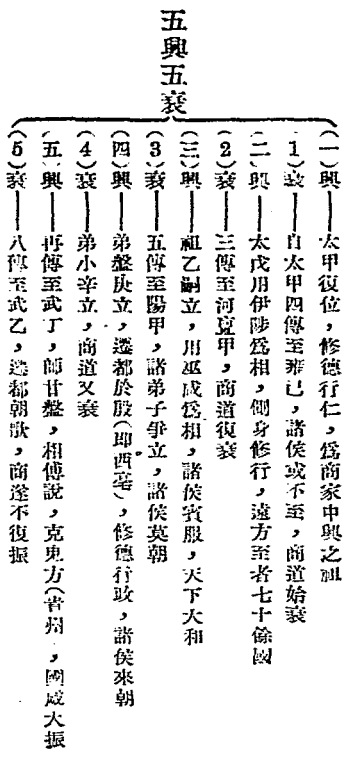 五興五衰
(一)興——太甲復位，修德行仁，爲商家中興之祖
(1)衰——自太甲四傳至雍已，諸侯或不至，商道始衰
(二)興——太戊用伊陟爲相，側身修行，遠方至者七十餘國
(2)衰——三傳至河亶甲，商道復衰
(三)興——祖乙嗣立，用巫咸爲相，諸侯賓服，天下大和
(3)衰——五傳至陽甲，諸弟子爭立，諸侯莫朝
(四)興——弟盤庚立，遷都於殷(卽西亳)，修德行政，諸侯來朝
(4)衰——弟小辛立，商道又衰
(五)興——再傳至武丁，師甘盤，相傅說，克鬼方(
州，國威大振
(5)衰——八傳至武乙，遷都朝歌，商遂不復振